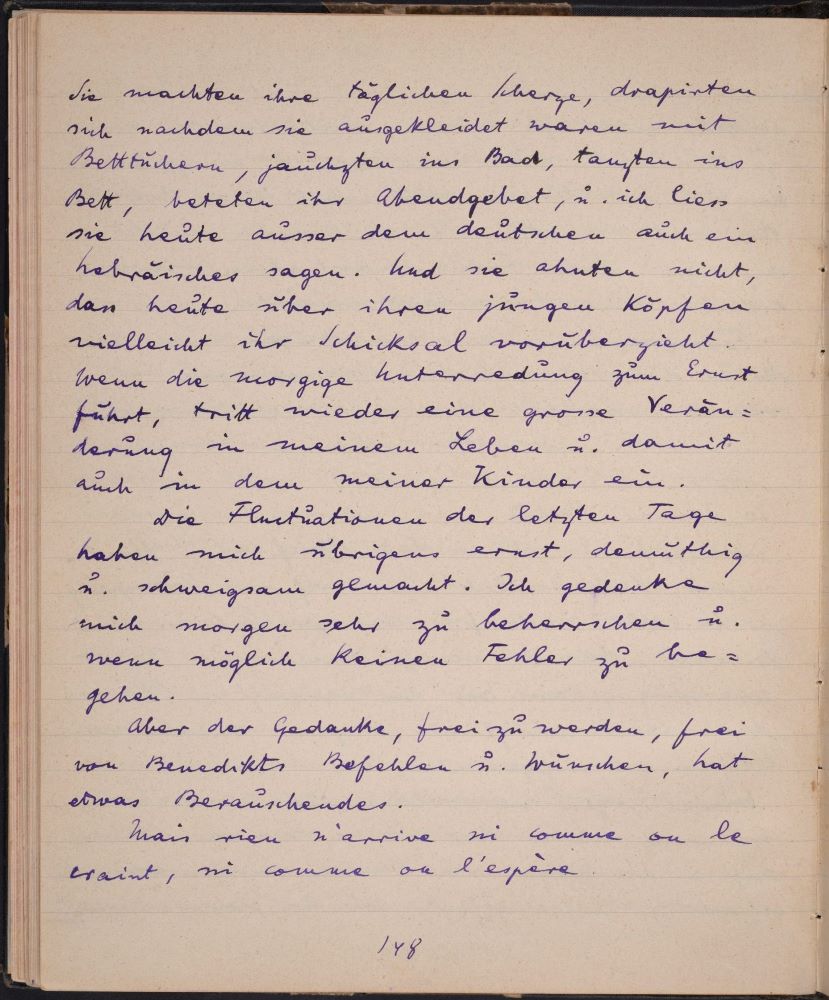 Sie machten ihre täglichen Scherze, drapirten
sich nachdem sie ausgekleidet waren mit
Betttüchern, jauchzten ins Bad, tanzten ins
Bett, beteten ihr Abendgebet, u. ich liess
sie heute ausser dem deutschen auch ein
hebräisches sagen. Und sie ahnten nicht,
dass heute über ihren jungen Köpfen
vielleicht ihr Schicksal vorüberzieht.
Wenn die morgige Unterredung zum Ernst
führt, tritt wieder eine grosse Verän=
derung in meinem Leben u. damit
auch in dem meiner Kinder ein.
Die Fluctuationen der letzten Tage
haben mich übrigens ernst, demüthig
u. schweigsam gemacht. Ich gedenke
mich morgen sehr zu beherrschen u.
wenn möglich keinen Fehler zu be=
gehen.
Aber der Gedanke, frei zu werden, frei
von Benedikts Befehlen u. Wünschen, hat
etwas Berauschendes.
Mais rien n'arrive ni comme on le
craint, ni comme on l'espère.
148